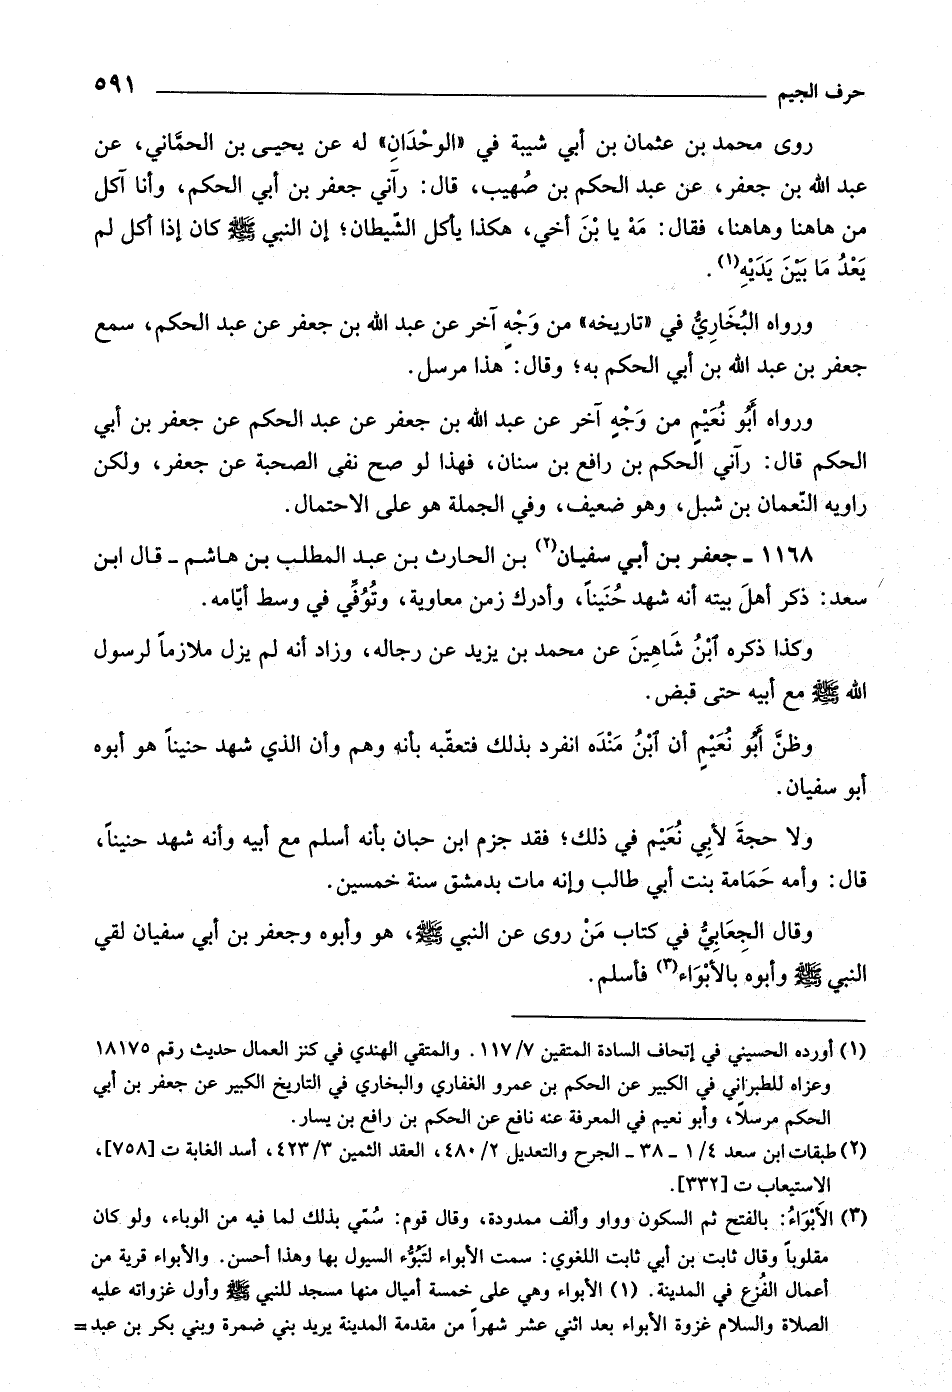 حرف الجيم ٥٩١
روى محمد بن عثمان بن أبي شيبة في «الوحْدَانِ» له عن يحيـى بن الحمَّاني، عن
عبد الله بن جعفر، عن عبد الحكم بن صُهيب، قال: رآني جعفر بن أبي الحكم، وأنا آكل
من هاهنا وهاهنا، فقال: مَهْ يا بْنَ أخي، هكذا يأكل الشّيطان؛ إن النبي ﷺ كان إذا أكل لم
يَعْدُ مَا بَيْنَ يَدَيْهِ(١).
ورواه البُخَارِيُّ في «تاريخه» من وَجْهٍ آخر عن عبد الله بن جعفر عن عبد الحكم، سمع
جعفر بن عبد الله بن أبي الحكم به؛ وقال: هذا مرسل.
ورواه أَبُو نُعَيْمٍ من وَجْهٍ آخر عن عبد الله بن جعفر عن عبد الحكم عن جعفر بن أبي
الحكم قال: رآني الحكم بن رافع بن سنان، فهذا لو صح نفى الصحبة عن جعفر، ولكن
راويه النّعمان بن شبل، وهو ضعيف، وفي الجملة هو على الاحتمال.
١١٦٨ ـ جعفر بن أبي سفيان(٢) بن الحارث بن عبد المطلب بن هاشم ـ قال ابن
سعد: ذكر أهلَ بيته أنه شهد حُنَيناً، وأدرك زمن معاوية، وتُوُفِّي في وسط أيّامه.
وكذا ذكره ٱبْنُ شَاهِينَ عن محمد بن يزيد عن رجاله، وزاد أنه لم يزل ملازماً لرسول
الله ﷺ مع أبيه حتى قبض.
وظنَّ أَبُو نُعَيْمٍ أن ٱبْنُ مَنْدَه انفرد بذلك فتعقّبه بأنه وهم وأن الذي شهد حنيناً هو أبوه
أبو سفيان.
ولا حجةَ لأبِي نُعَيْم في ذلك؛ فقد جزم ابن حبان بأنه أسلم مع أبيه وأنه شهد حنيناً،
قال: وأمه حَمَامة بنت أبي طالب وإنه مات بدمشق سنة خمسين.
وقال الجِعَابِيُّ في كتاب مَنْ روى عن النبي ﷺ، هو وأبوه وجعفر بن أبي سفيان لقي
النبي ﷺ وأبوه بالأبْوَاء(٣) فأسلم.
(١) أورده الحسيني في إتحاف السادة المتقين ١١٧/٧. والمتقي الهندي في كنز العمال حديث رقم ١٨١٧٥
وعزاه للطبراني في الكبير عن الحكم بن عمرو الغفاري والبخاري في التاريخ الكبير عن جعفر بن أبي
الحكم مرسلاً، وأبو نعيم في المعرفة عنه نافع عن الحكم بن رافع بن يسار.
(٢) طبقات ابن سعد ١/٤ ـ ٣٨ ـ الجرح والتعديل ٤٨٠/٢، العقد الثمين ٤٢٣/٣، أسد الغابة ت [٧٥٨]،
الاستيعاب ت [٣٣٢].
(٣) الأَبْوَاءُ: بالفتح ثم السكون وواو وألف ممدودة، وقال قوم: سُمّي بذلك لما فيه من الوباء، ولو كان
مقلوباً وقال ثابت بن أبي ثابت اللغوي: سمت الأبواء لتَبُوُّء السيول بها وهذا أحسن. والأبواء قرية من
أعمال الفُرْع في المدينة. (١) الأبواء وهي على خمسة أميال منها مسجد للنبي ﷺ وأول غزواته عليه
الصلاة والسلام غزوة الأبواء بعد اثني عشر شهراً من مقدمة المدينة يريد بني ضمرة وبني بكر بن عبد =